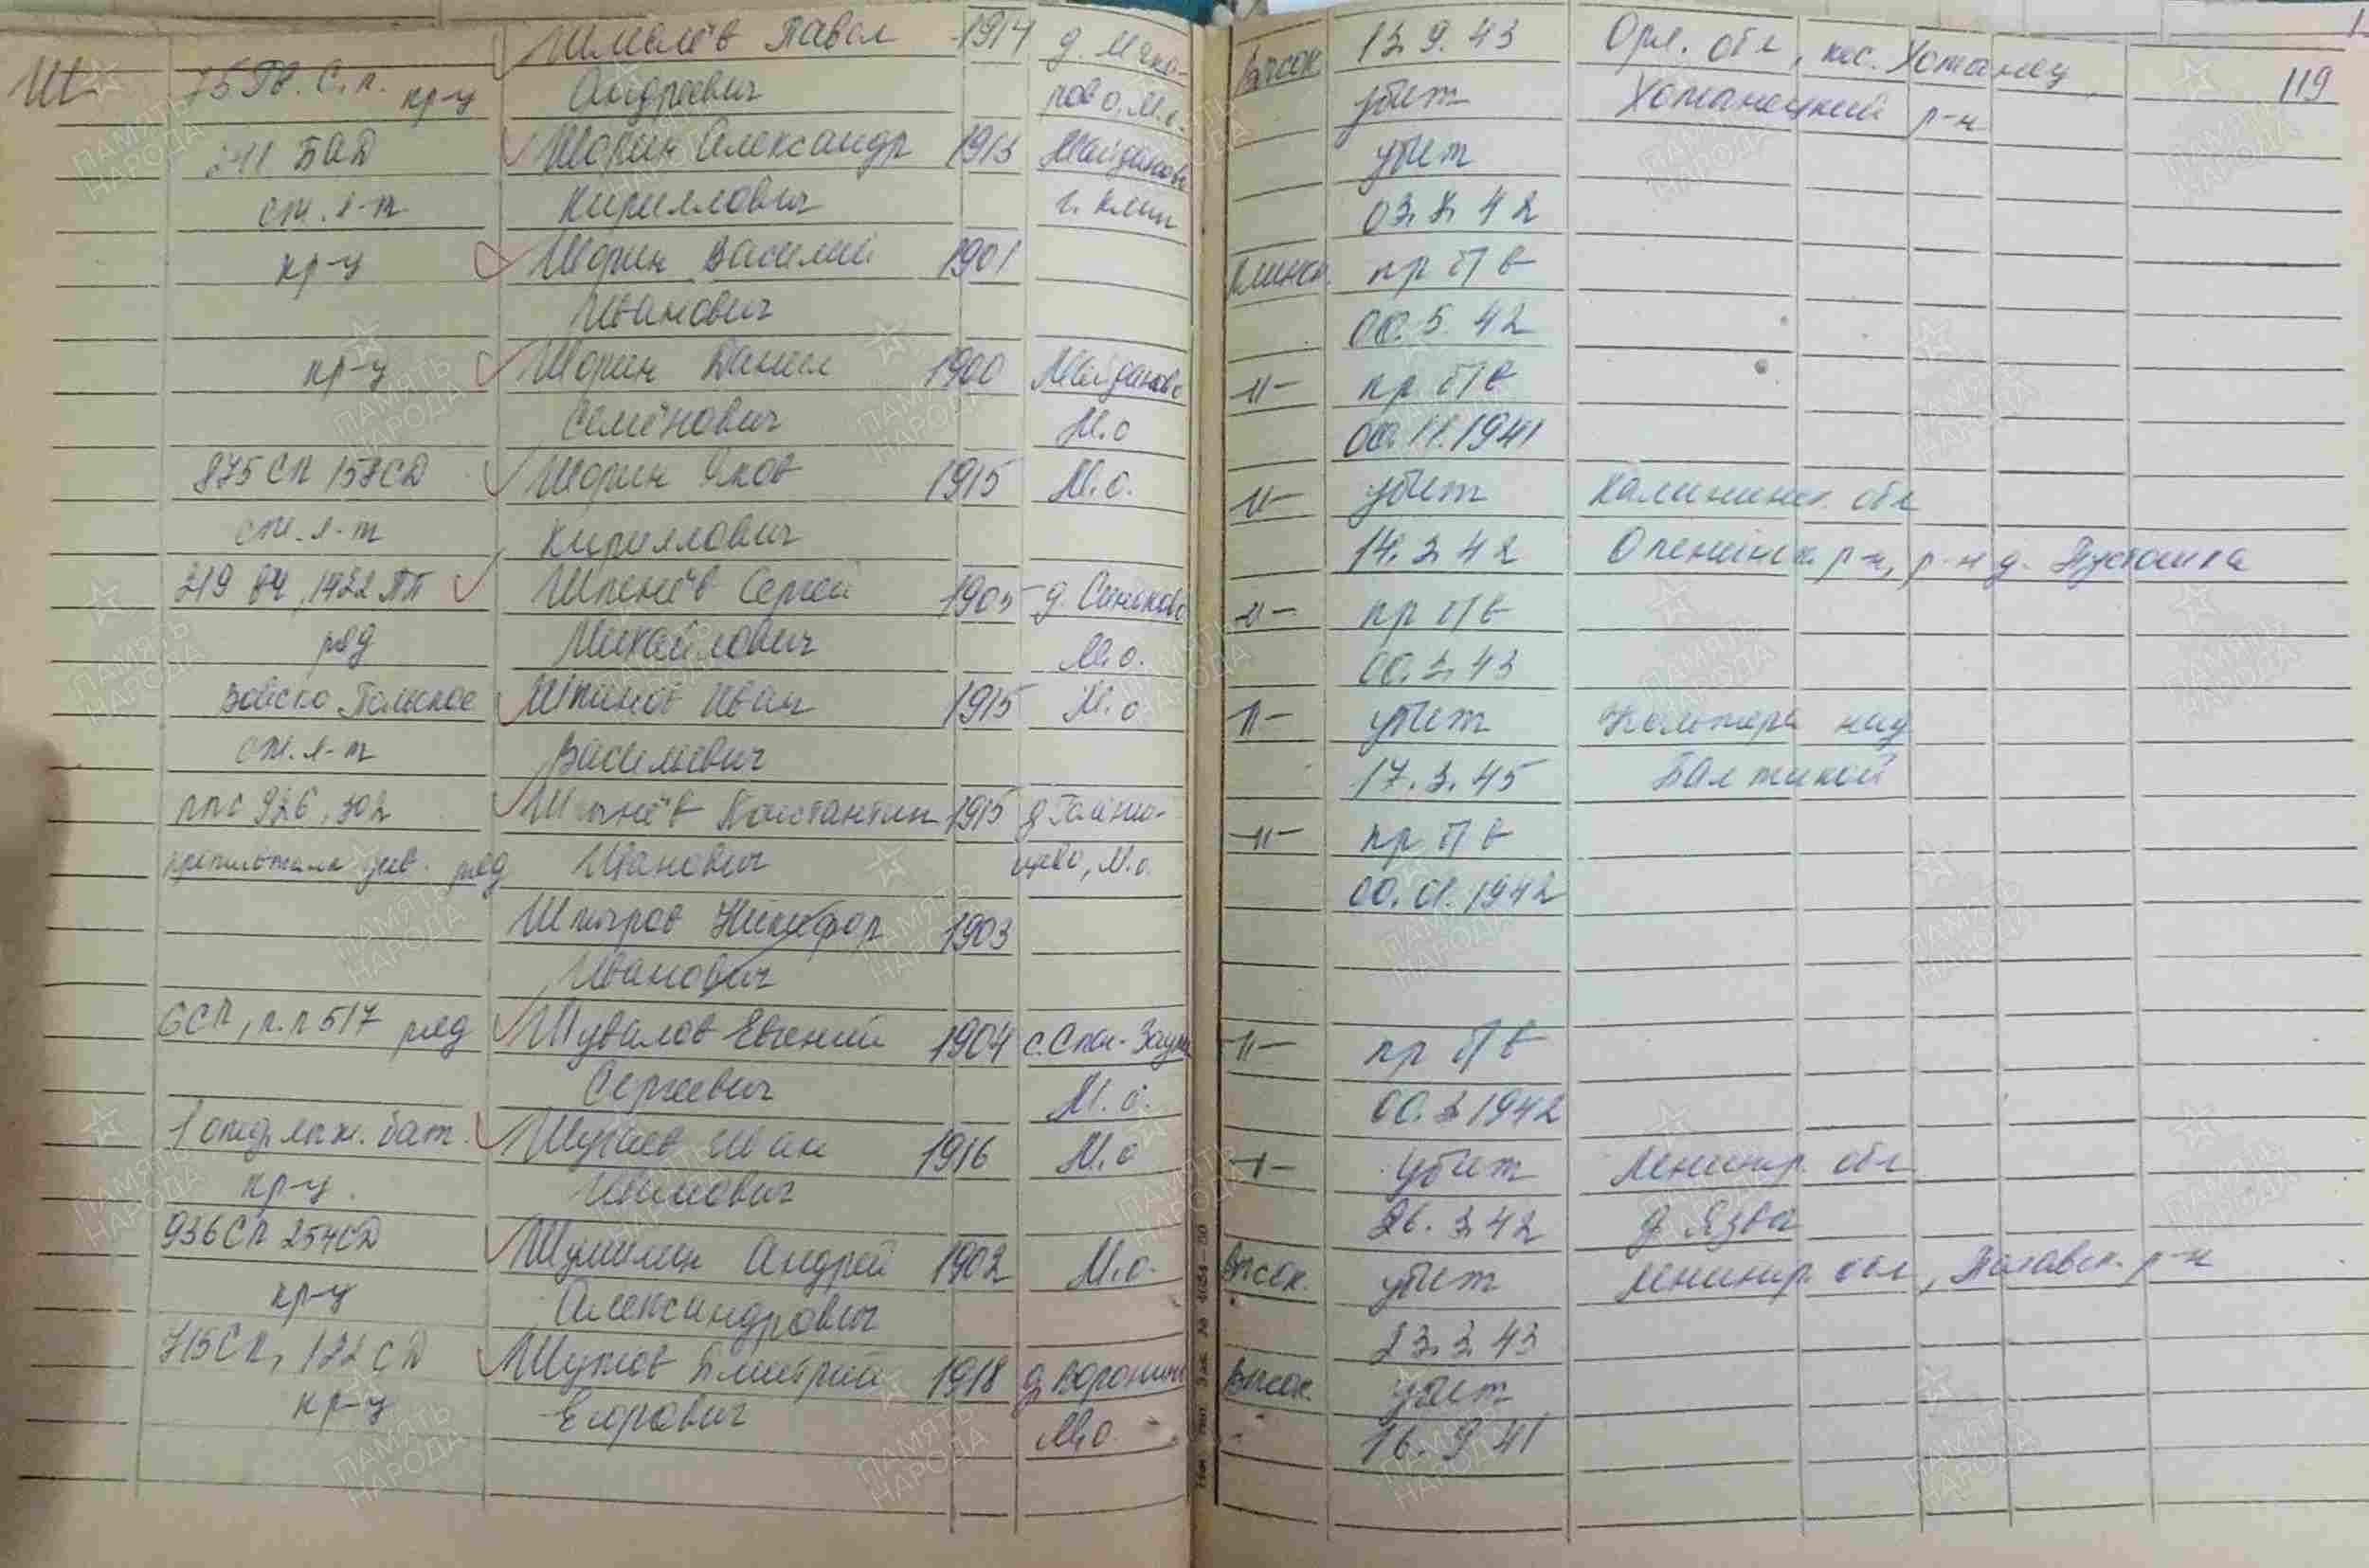 Ш
75 Гв. С.п. кр-ц Шмелёв Павел 1914 д. Мяко-
Андреевич ново М.о.
Высок. 13.9.43 Орл. обл, пос. Хотанец 119
убит Хотанецкий р-н
241 БАД Шорин Александр 1913 Майданово
ст. л-т Кириллович г. Клин
убит
03.8.42
кр-ц Шорин Василий 1901
Иванович
Клинск. пр б/в
00.5.42
кр-ц Шорин Данил 1900 Майданово
Семёнович М.о
-"- пр б/в
00.11.1941
875 СП 158 СД Шорин Яков 1915 М.о.
ст. л-т Кириллович
-"- убит Калининск. обл
14.3.42 Оленинск. р-н, р-н д. Пустошка
219 вч, 1422 ПП Шпенёв Сергей 1905 д. Синьково
ряд Михайлович М.о.
-"- пр б/в
00.3.43
Войско Польское Шпинов Иван 1915 М.о
ст. л-т Васильевич
-"- убит над
17.3.45 Балтикой
ппс 926, 302 Константин 1915 д Голяни-
ряд Иванович щево, М.о.
-"- пр б/в
00.01.1942
Шпыров Никифор 1903
Иванович
6 СП, п.п 517 ряд Шувалов Евгений 1904 с. Спас-Заул
Сергеевич М.о.
-"- пр б/в
00.3.1942
1 отд лыж. бат. Иван 1916 М.о
кр-ц. Иванович
-"- убит Ленингр. обл
26.3.42 д Язва
936 СП 254 СД Шумилин Андрей 1902 М.о.
кр-ц Александрович
Высок. убит Ленингр. обл, р-н
23.3.43
715 СП, 122 СД Дмитрий 1918 д Воронино
кр-ц Егорович М.о.
Высок. убит
16.9.41
ПАМЯТЬ НАРОДА